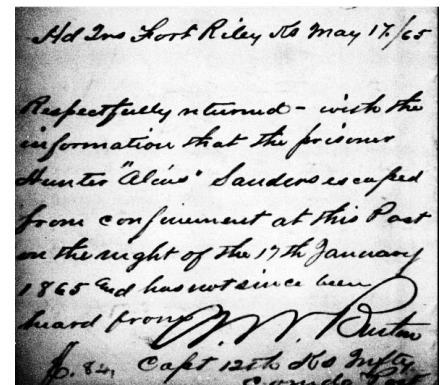 Hd Qrs Fort Riley Ks May 17/65
Respectfully returned - with the
information that the prisoner
Hunter "Alias" Sanders escaped
from confinement at this Post
on the night of the 17th January
1865 and has not since been
heard from
Capt 12th Ks Infty
Comdg Post